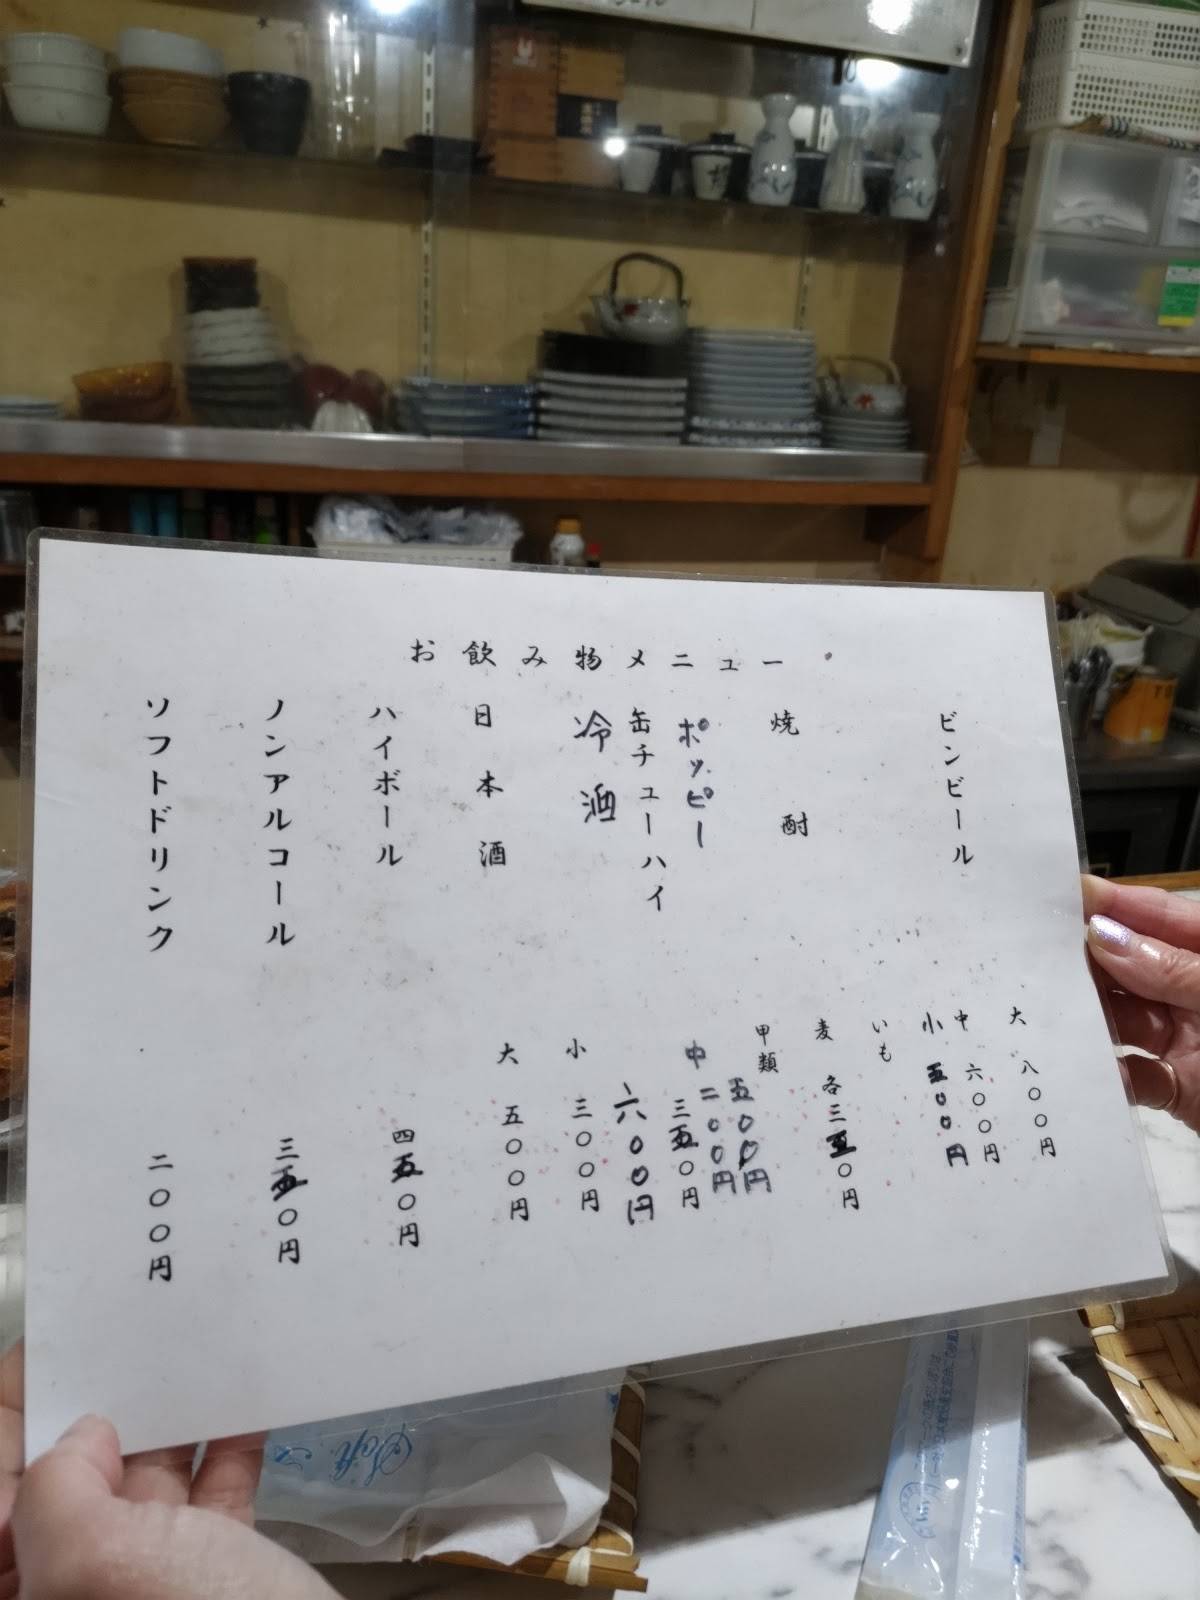 お飲み物メニュー
ビンビール
大 八〇〇円
中 六〇〇円
小 五〇〇円
焼酎
いも
麦 各三五〇円
甲類
ホッピー 五〇〇円
中 二〇〇円
缶チューハイ 三五〇円
冷酒 六〇〇円
日本酒
小 三〇〇円
大 五〇〇円
ハイボール 四五〇円
ノンアルコール 三五〇円
ソフトドリンク 二〇〇円
Soft